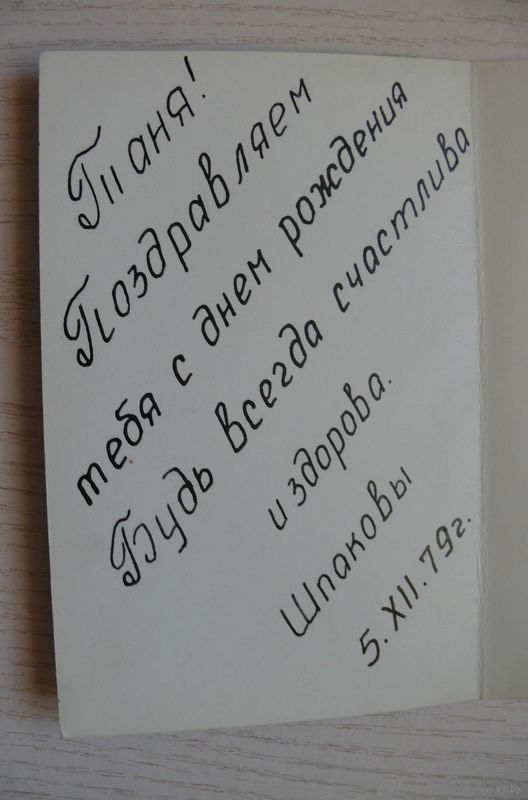 Таня!
Поздравляем
тебя с днем рождения
Будь всегда счастлива
и здорова.
Шпаковы
5.XII.79г.